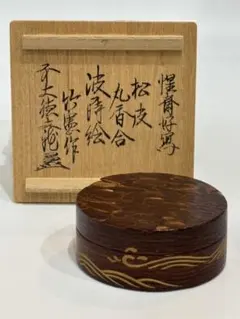 惺斎好写
松皮
丸香合
波蒔絵
竹憲作